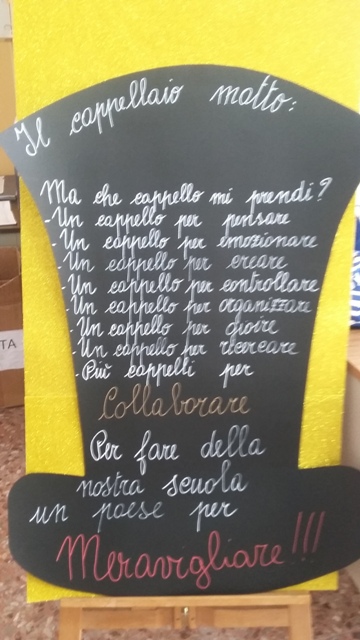 Il cappellaio matto:
Ma che cappello mi prendi?
-Un cappello per pensare
-Un cappello per emozionare
-Un cappello per creare
-Un cappello per controllare
-Un cappello per organizzare
-Un cappello per gioire
-Un cappello per ricercare
-Più cappelli per
Collaborare
Per fare della
nostra scuola
un paese per
Meravigliare!!!
TA